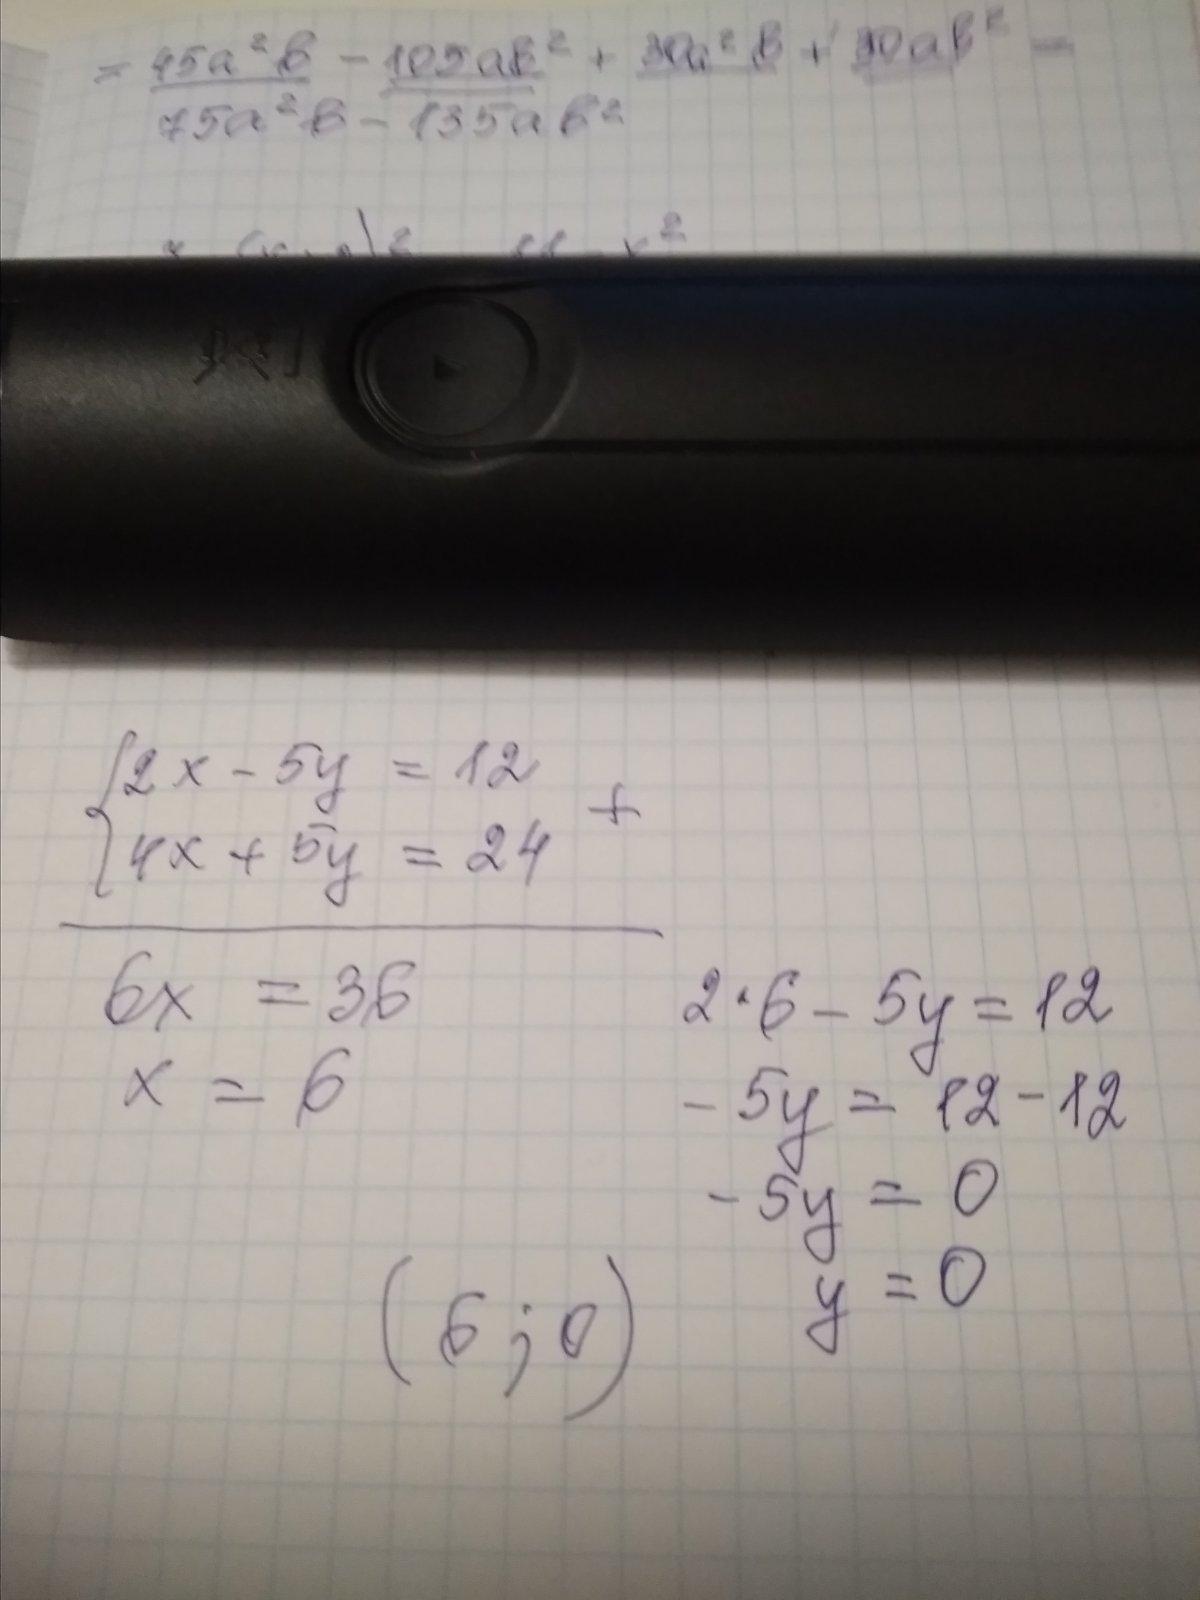 = 45a²b - 105ab² + 30a²b + 30ab² =
75a²b - 135ab²
{2x - 5y = 12
+
4x + 5y = 24
6x = 36
x = 6
2·6 - 5y = 12
-5y = 12 - 12
-5y = 0
y = 0
(6; 0)